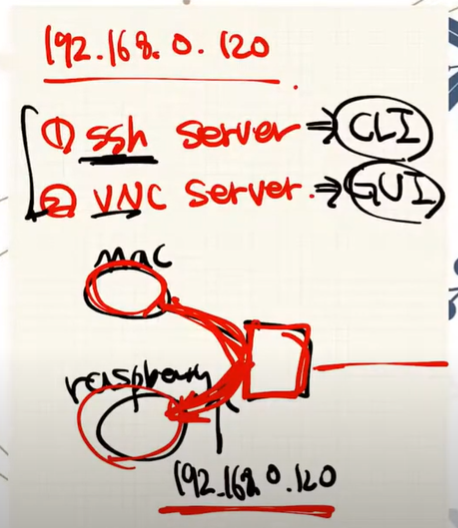 192.168.0.120
① ssh server ⇒ CLI
② VNC server. ⇒ GUI
mac
raspberry
192.168.0.120